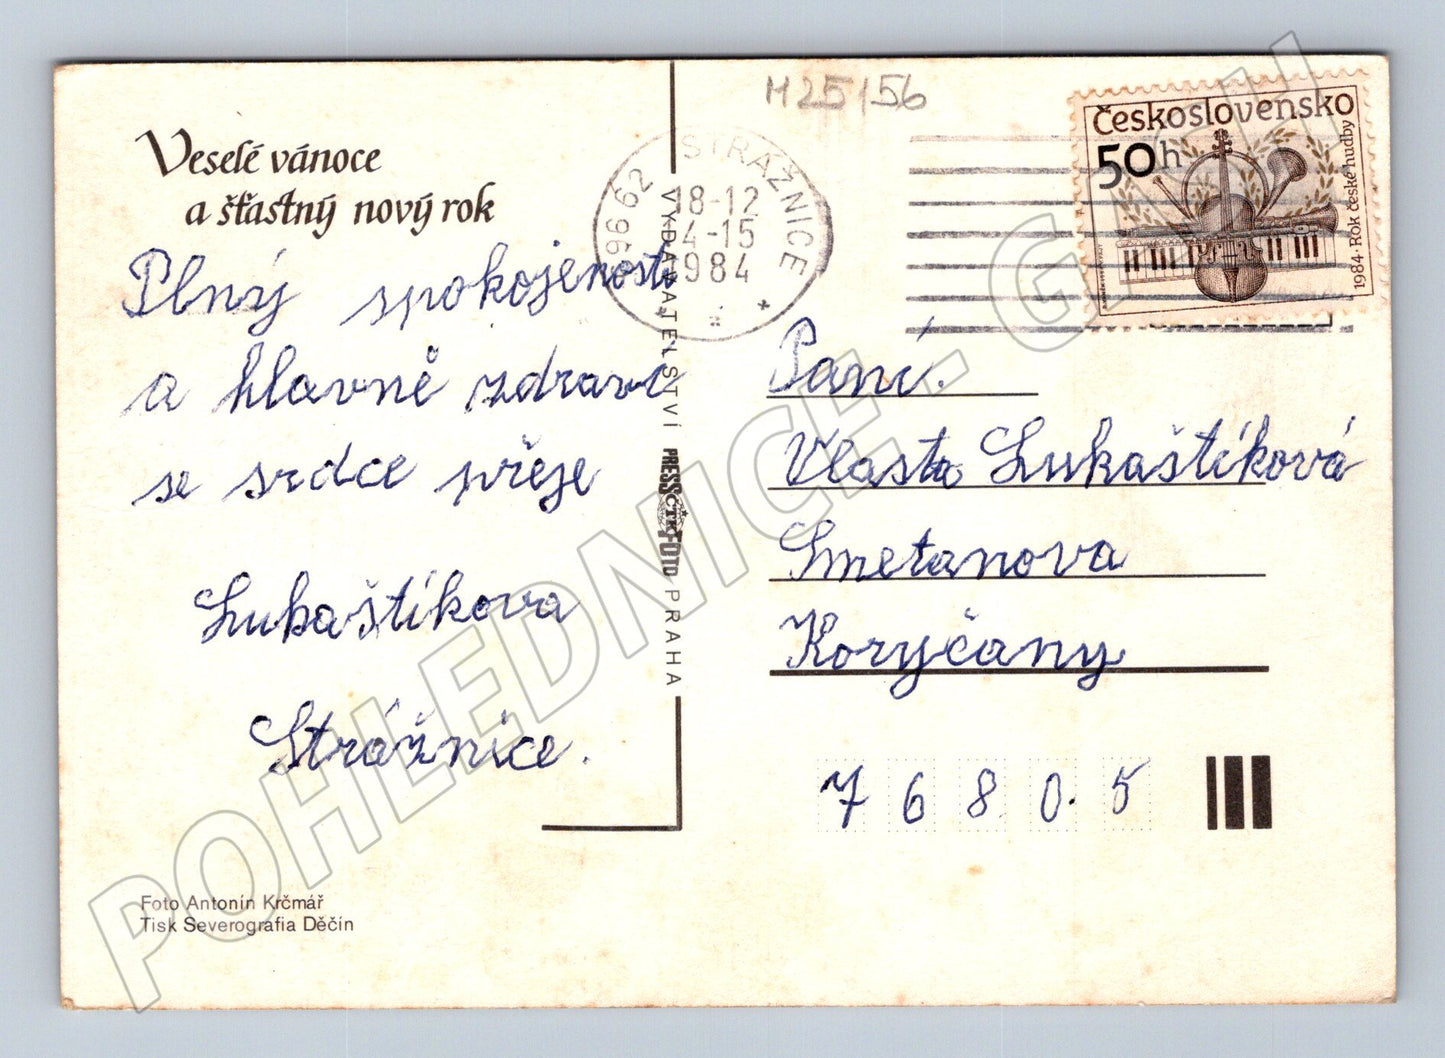 Veselé vánoce
a šťastný nový rok
Plný spokojenosti
a hlavně zdraví
se srdce přeje
Lukaštíkova
Strážnice.
Foto Antonín Krčmář
Tisk Severografia Děčín
VYDAVATELSTVÍ PRESSFOTO PRAHA
ČTK
M25156
696 62 STRÁŽNICE
18-12
4-15
1984
Československo
50h
1984-Rok české hudby
Paní.
Vlasta Lukaštíková
Smetanova
Koryčany
7 6 8 0. 5
POHLEDNICE - GASH